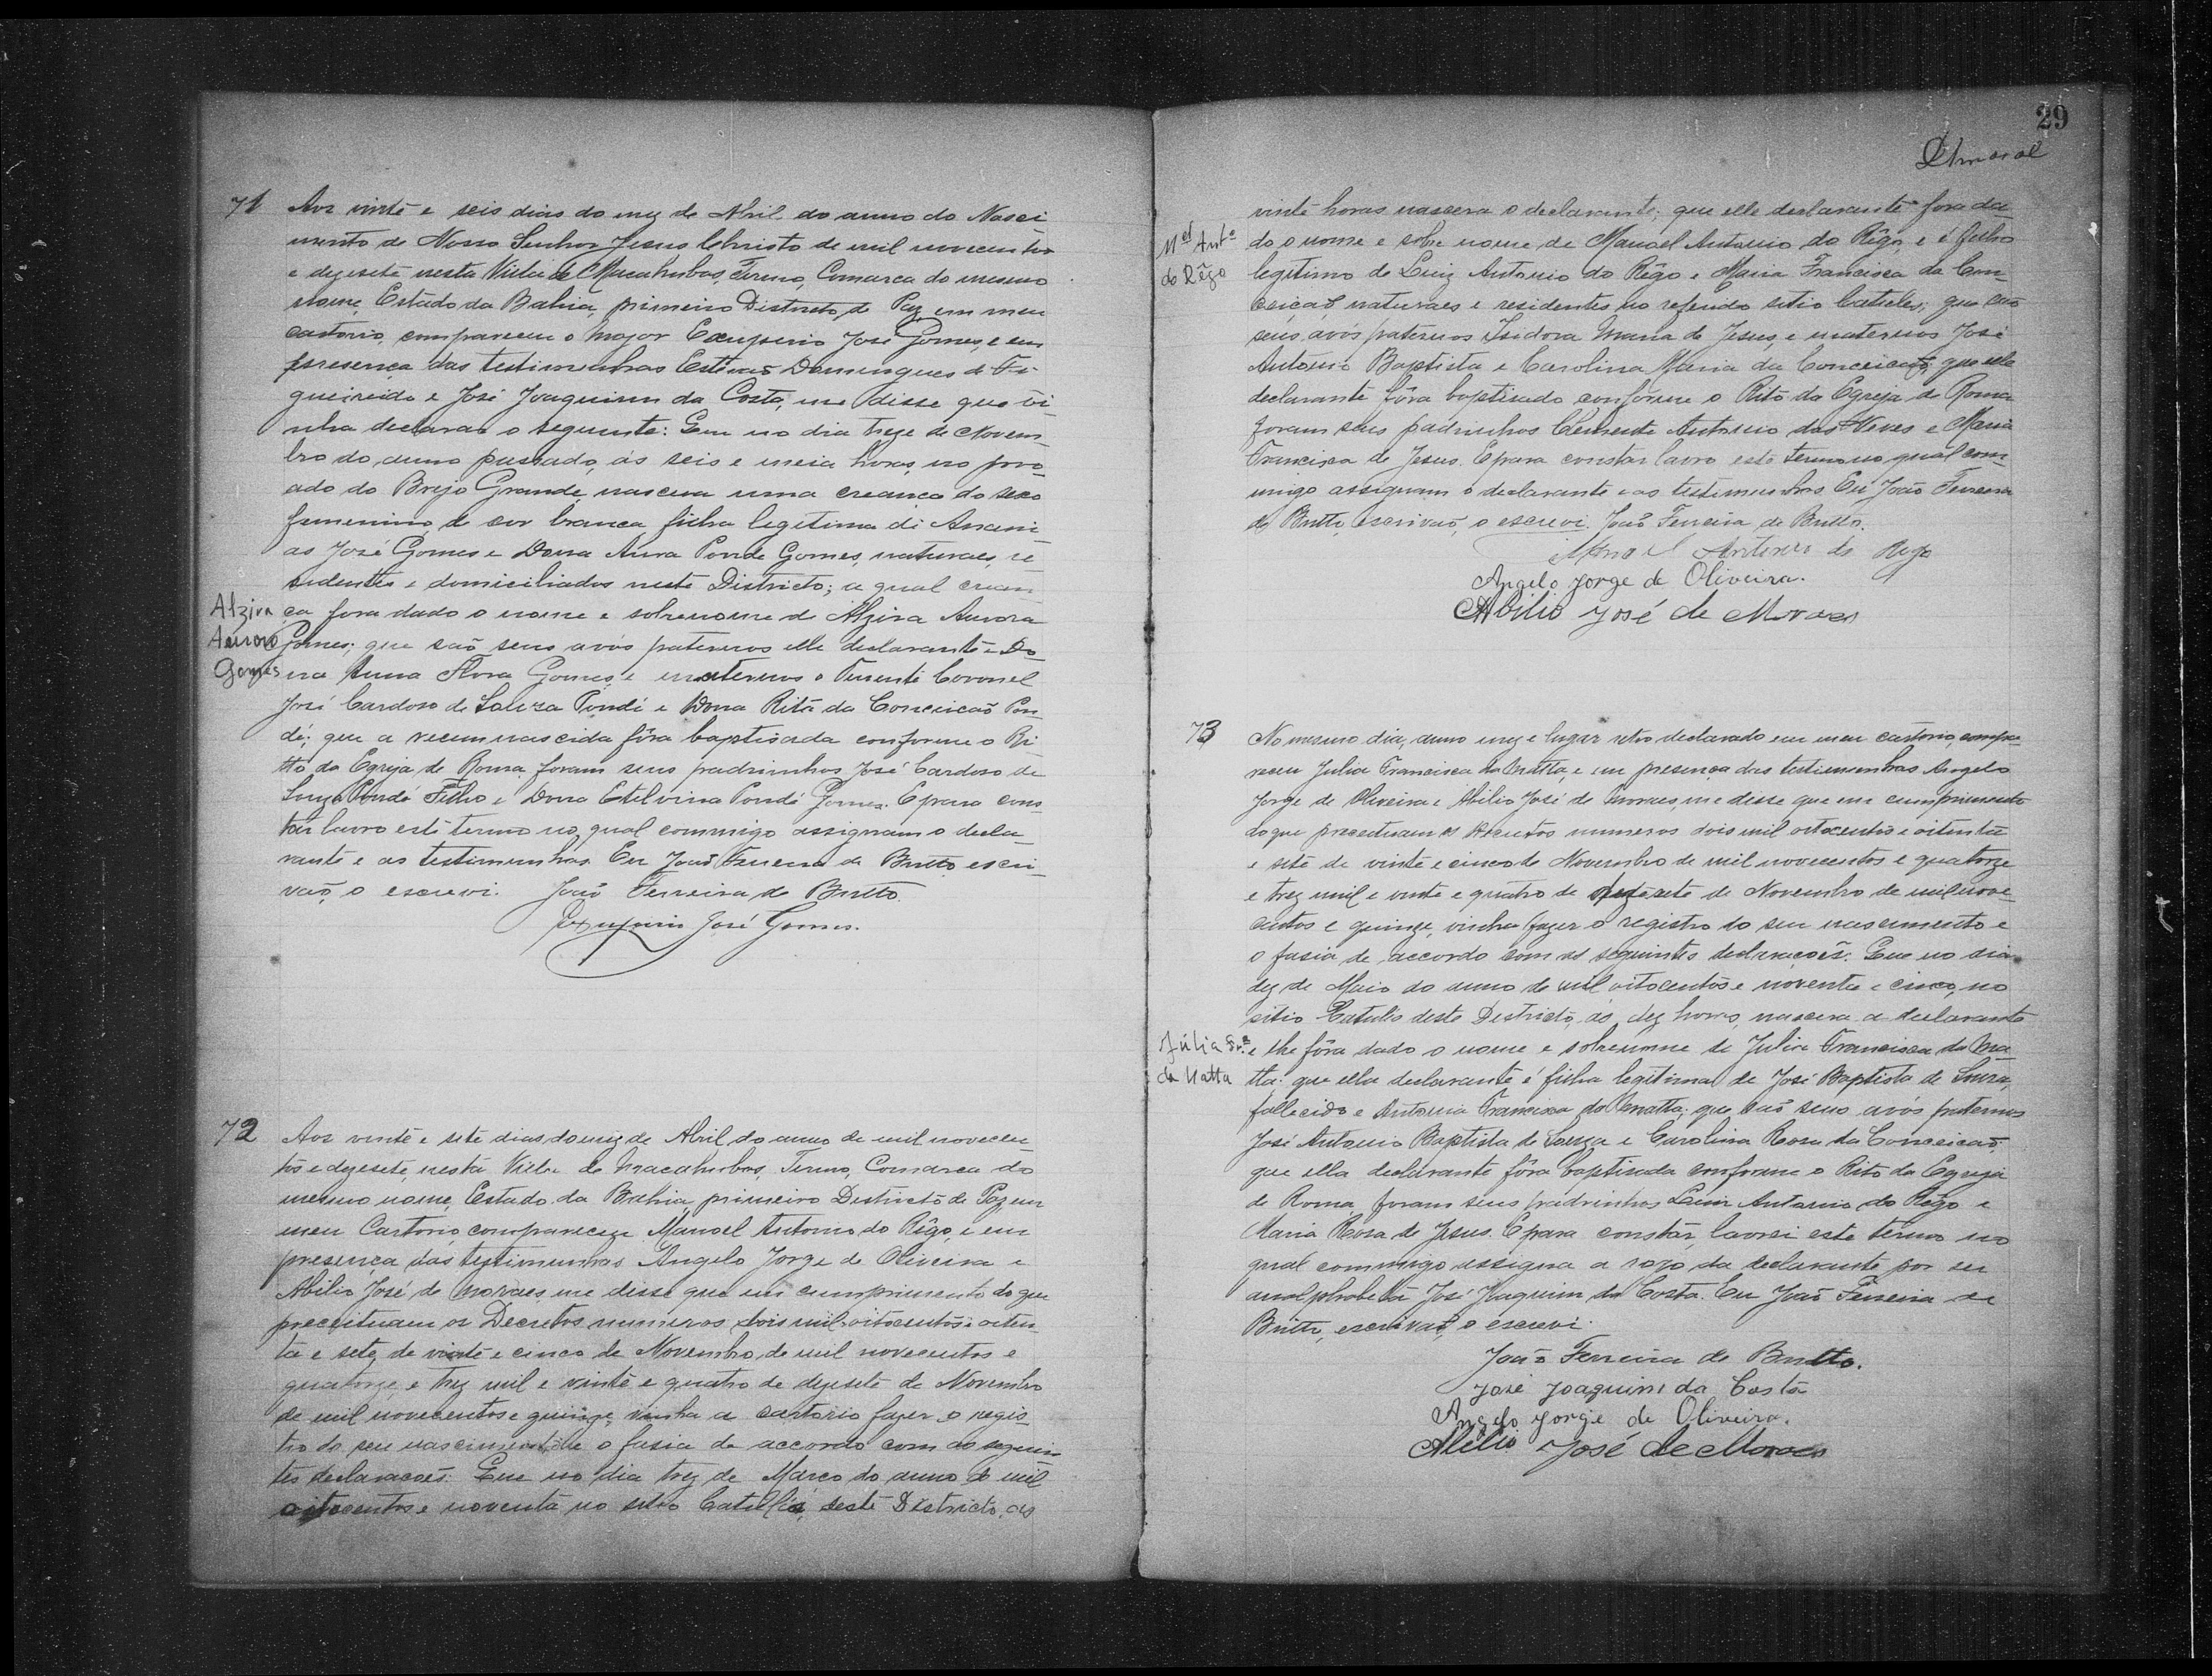 71 Aos vinte e seis dias do mez de Abril do anno do Nasci
mento de Nosso Senhor Jesus Christo de mil novecentos
e dezesete nesta Villa de Macahubas, Termo, Comarca do mesmo
nome, Estado da Bahia, primeiro Districto de Paz em meu
cartorio, compareceu o Major José Gomes, e em
presença das testimunhas Estevaõ Domingues de Fi-
gueiredo e José Joaquim da Costa, me disse que vi
nha declarar o seguinte: Que no dia treze de Novem
bro do anno passado, ás seis e meia horas, no povo
ado do Brejo Grande, nascera uma creança do sexo
femenino, de cor branca, filha legitima di Anani
as José Gomes e Dona Aura Pondé Gomes, naturaes, re
sidentes e domiciliados neste Districto; a qual crean
Alzira Aurora Gomes
ça fora dado o nome e sobrenome de Alzira Aurora
Gomes; que saõ seus avós paternos elle declarante e Do
na Anna Flora Gomes, e maternos o Tenente Coronel
José Cardoso de Souza Pondé e Dona Rita da Conceicaõ Pon
dé; que a recemnascida fôra baptisada conforme o Ri
tto da Egreja de Roma, foram seus padrinhos José Cardoso de
Souza Pondé Filho e Dona Etelvina Pondé Gomes. E para cons
tar lavro este termo no qual commigo assignam o decla
rante e as testimunhas. Eu João Ferreira de Britto escri
vaõ, o escrevi. João Ferreira de Britto
José Gomes.
72 Aos vinte e sete dias do mez de Abril do anno de mil novecen
tos e dezesete, nesta Villa de Macahubas, Termo, Comarca do
mesmo nome, Estado da Bahia, primeiro Districto de Paz em
meu Cartorio, compareceu Manoel Antonio do Rêgo, e em
presença das testimunhas Angelo Jorge de Oliveira e
Abilio José de Moraes, me disse que em cumprimento do que
preceituam os Decretos numeros dois mil oitocentos e oiten
ta e sete, de vinte e cinco de Novembro de mil novecentos e
quatorze, e trez mil e vinte e quatro de dezesete de Novembro
de mil novecentos e quinze, vinha a cartorio fazer o regis
tro do seu nascimento e o fasia de accordo com as seguin
tes declaracoes: Que no dia trez de Março do anno de mil
oitocentos e noventa no sitio deste Districto, as
29
Amaral
vinte horas nascera o declarante; que elle declarante fora da
Mel Antº do Rêgo
do o nome e sobre nome de Manoel Antonio do Rêgo, e é filho
legitimo de Luiz Antonio do Rêgo e Maria Francisca da Con
ceiçaõ, naturaes e residentes no referido sitio; que saõ
seus avós paternos Isidora Maria de Jesus, e maternos José
Antonio Baptista e Carolina Maria da Conceicaõ, que elle
declarante fôra baptisado conforme o Rito da Egreja de Roma
foram seus padrinhos Clemente Antonio das Neves e Maria
Francisca de Jesus. E para constar lavro este termo no qual com
migo assignam o declarante e as testimunhas. Eu João Ferreira
de Britto, escrivaõ, o escrevi. João Ferreira de Britto.
Manoel Antonio do Rego
Angelo Jorge de Oliveira.
Abilio José de Moraes
73 No mesmo dia, anno mez e lugar retro declarado em meu cartorio, compa
receu Julia Francisca da Matta, e em presença das testimunhas Angelo
Jorge de Oliveira e Abilio José de Moraes, me disse que em cumprimento
do que preceituam os Decretos numeros dois mil oitocentos e oitenta
e sete de vinte e cinco de Novembro de mil novecentos e quatorze
e trez mil e vinte e quatro de dezesete de Novembro de mil nove
centos e quinze, vinha fazer o registro do seu nascimento e
o fasia de accordo com as seguintes declaraçoes. Que no dia
dez de Maio do anno de mil oitocentos e noventa e cinco, no
sitio deste Districto, ás dez horas, nascera a declarante
Júlia Frª da Matta
e lhe fôra dado o nome e sobrenome de Julia Francisca da Ma
tta: que ella declarante é filha legitima de José Baptista de Souza,
fallecido e Antonia Francisca da Matta; que saõ seus avós paternos
José Antonio Baptista de Souza e Carolina Rosa da Conceicaõ;
que ella declarante fôra baptisada conforme o Rito da Egreja
de Roma, foram seus padrinhos Luiz Antonio do Rêgo e
Maria Rosa de Jesus. E para constar, lavrei este termo no
qual commigo assigna a rogo da declarante por ser
analphabeta José Joaquim da Costa. Eu João Ferreira de
Britto, escrivaõ, o escrevi.
João Ferreira de Britto.
José Joaquim da Costa
Angelo Jorge de Oliveira.
Abilio José de Moraes